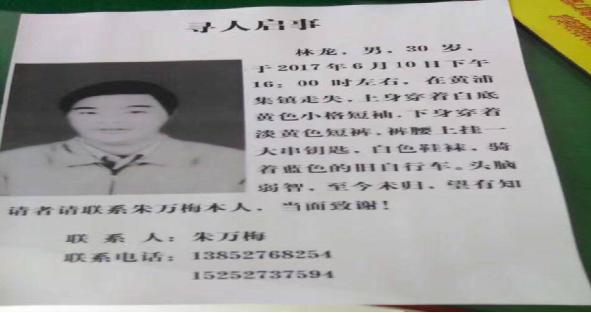 寻人启事
林龙，男，30岁，
于2017年6月10日下午
16：00时左右，在黄浦
集镇走失，上身穿着白底
黄色小格短袖，下身穿着
淡黄色短裤，裤腰上挂一
大串钥匙，白色鞋袜，骑
着蓝色的旧自行车。头脑
弱智，至今未归，望有知
请者请联系朱万梅本人，当面致谢！
联 系 人：朱万梅
联系电话：13852768254
15252737594